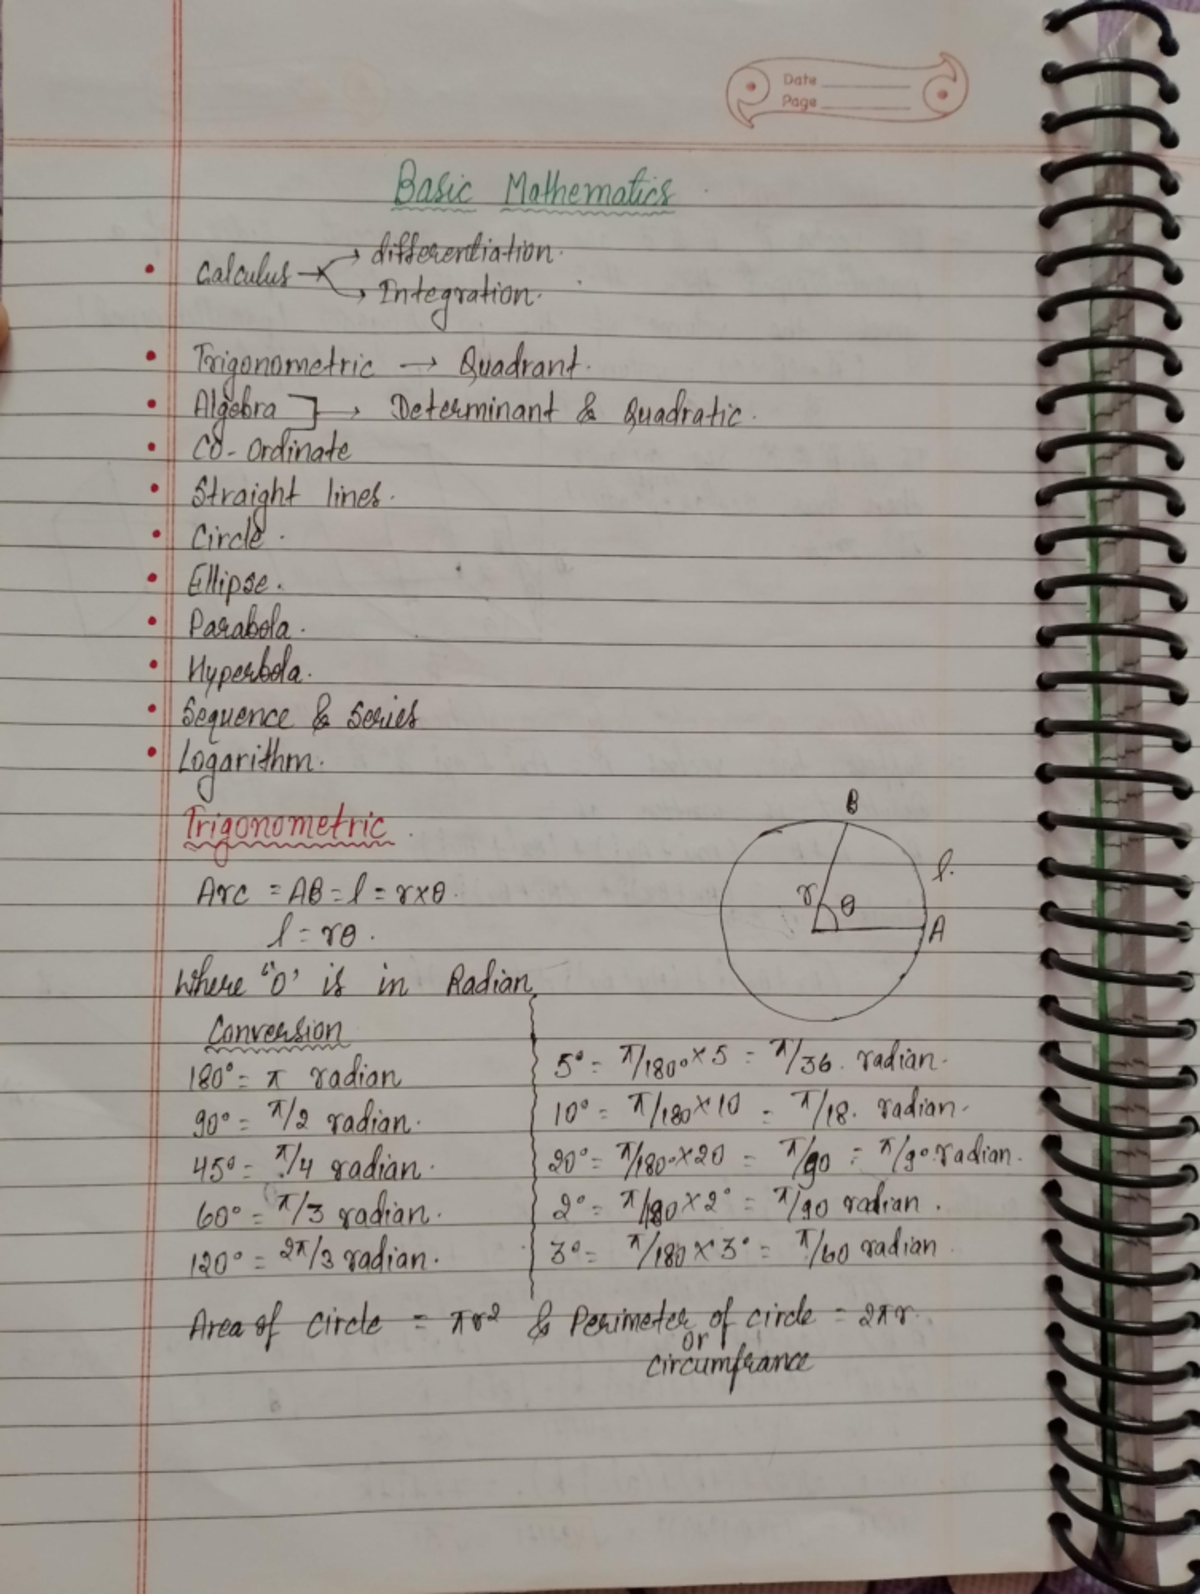 Date
Page
Basic Mathematics
Calculus → differentiation.
→ Integration.
Trigonometric → Quadrant.
Algebra → Determinant & Quadratic.
Co-Ordinate
Straight lines.
Circle.
Ellipse.
Parabola.
Hyperbola.
Sequence & Series
Logarithm.
Trigonometric.
B
l.
r θ
A
Arc = AB = l = r×θ.
l = rθ.
Where "θ' is in Radian
Conversion
180° = π radian
90° = π/2 radian.
45° = π/4 radian.
60° = π/3 radian.
120° = 2π/3 radian.
5° = π/180° × 5 = π/36. radian.
10° = π/180 × 10 = π/18. radian.
20° = π/180° × 20 = π/90 = π/9°. radian.
2° = π/180 × 2° = π/90 radian.
3° = π/180 × 3° = π/60 radian.
Area of circle = πr² & Perimeter of circle = 2πr.
or
circumfrance